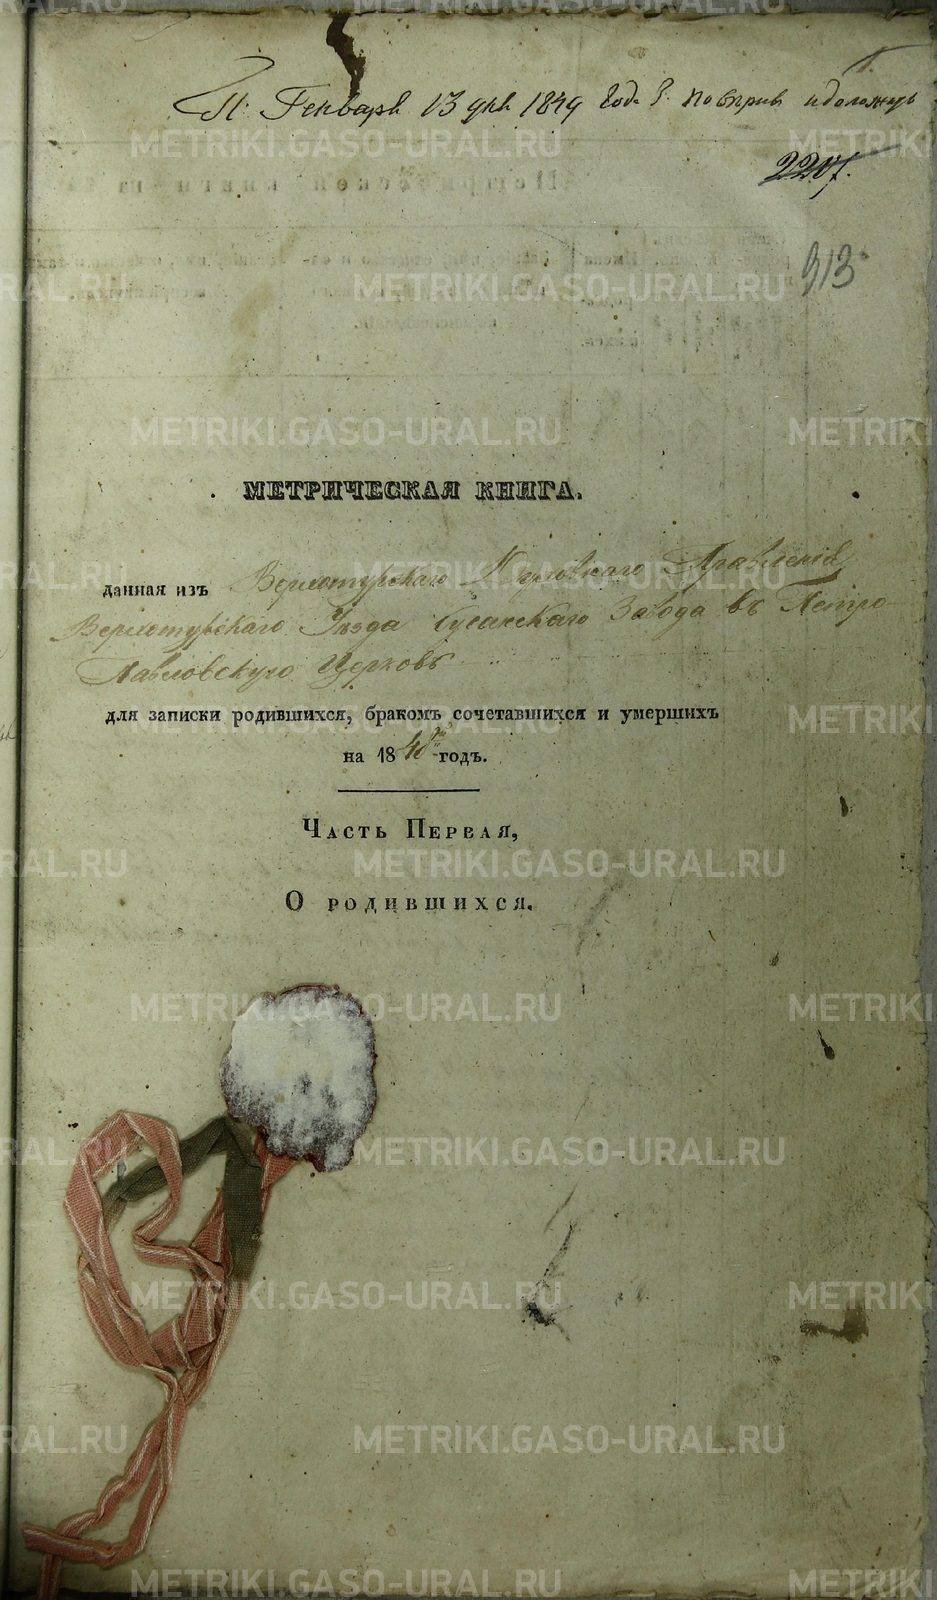 П: Генваря 13 дня 1849 Года. Повѣрив и доложить
2207.
913
МЕТРИЧЕСКАЯ КНИГА.
данная изъ Верхотурскаго Духовнаго Правленія
Верхотурскаго Уѣзда Сусанскаго Завода въ Петро-
Павловскую Церковь
для записки родившихся, бракомъ сочетавшихся и умершихъ
на 1848 годъ.
Часть Первая,
О родившихся.
METRIKI.GASO-URAL.RU